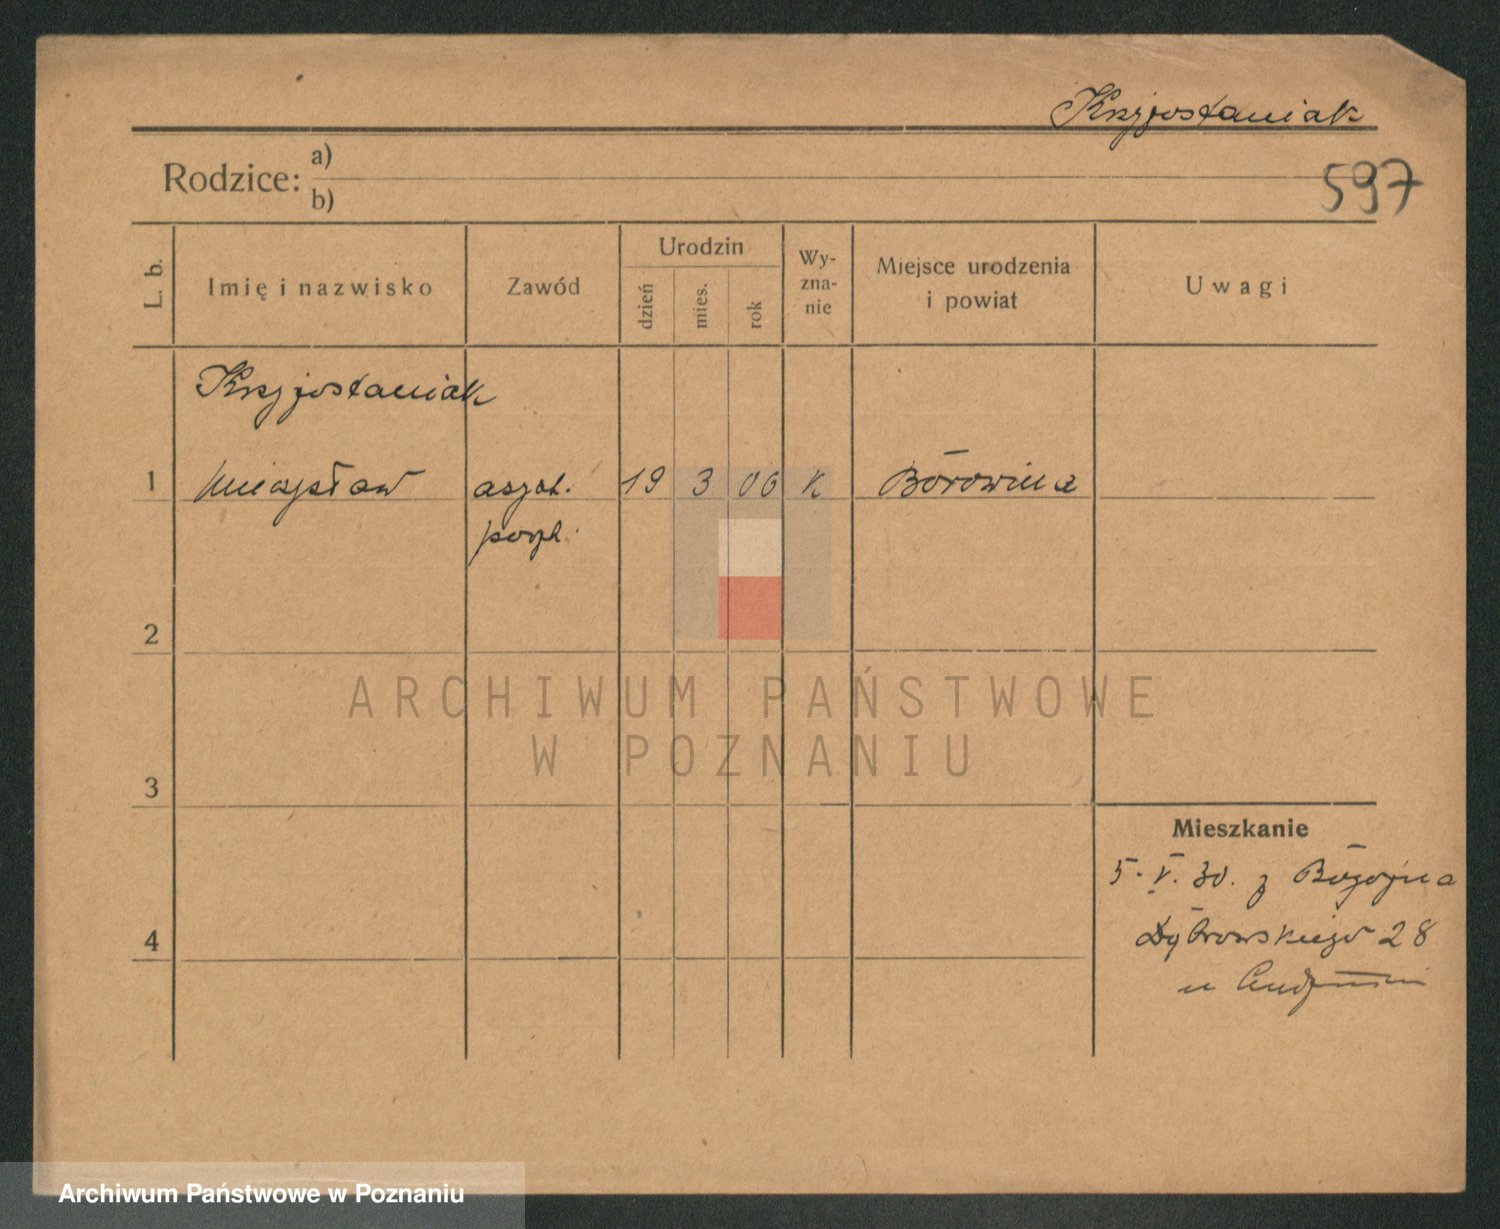 Krzyżostaniak
597
Rodzice: a)
b)
L. b.
Imię i nazwisko
Zawód
Urodzin
dzień
mies.
rok
Wy-
zna-
nie
Miejsce urodzenia
i powiat
Uwagi
Krzyżostaniak
1 Mieczysław asyst. 19 3 06 K Borowina
poczt.
2
ARCHIWUM PAŃSTWOWE
W POZNANIU
3
Mieszkanie
5. V. 30. z
4
Dąbrowskiego 28
u
Archiwum Państwowe w Poznaniu